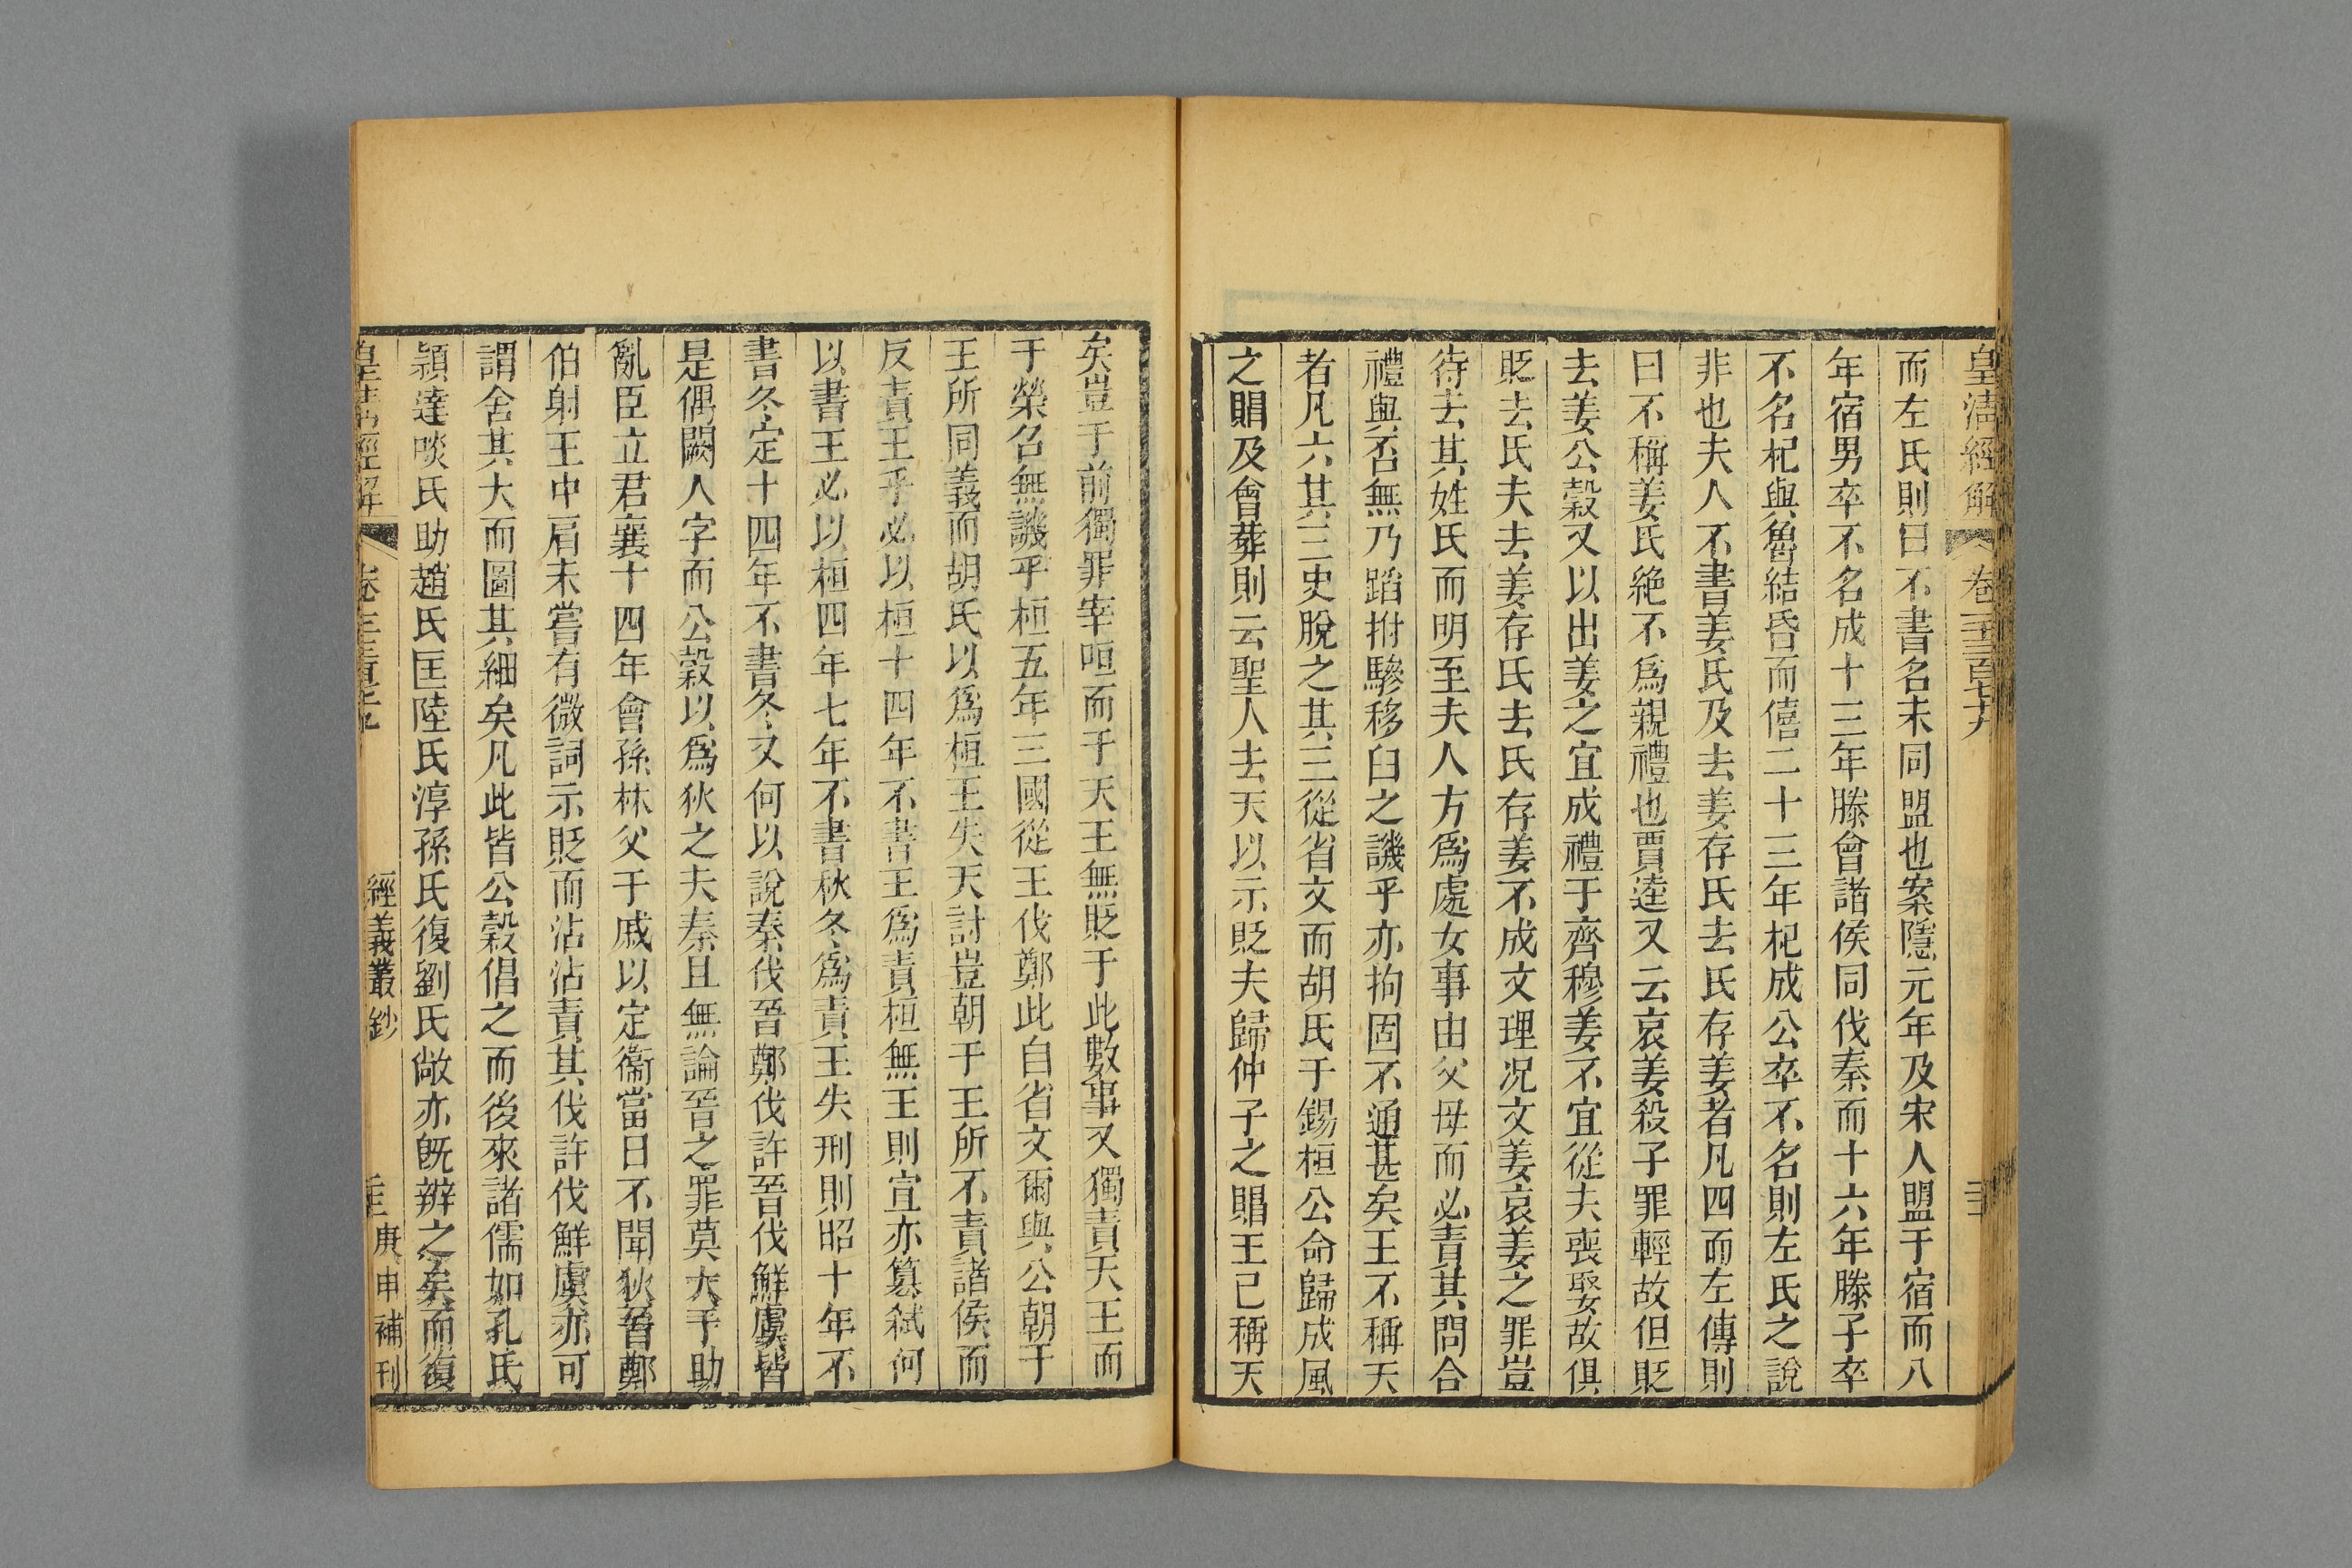 皇淸經解 卷一千三百七十九
而左氏則曰不書名未同盟也案隱元年及宋人盟于宿而八
年宿男卒不名成十三年滕會諸侯同伐秦而十六年滕子卒
不名杞與魯結昏而僖二十三年杞成公卒不名則左氏之說
非也夫人不書姜氏及去姜存氏去氏存姜者凡四而左傳則
曰不稱姜氏絶不爲親禮也賈逵又云哀姜殺子罪輕故但貶
去姜公穀又以出姜之宜成禮于齊穆姜不宜從夫喪娶故俱
貶去氏夫去姜存氏去氏存姜不成文理况文姜哀姜之罪豈
待去其姓氏而明至夫人方爲處女事由父母而必責其問合
禮與否無乃蹈拊驂移臼之譏乎亦拘固不通甚矣王不稱天
者凡六其三史脫之其三從省文而胡氏于錫桓公命歸成風
之賵及會葬則云聖人去天以示貶夫歸仲子之賵王已稱天
矣豈于前獨罪宰咺而于天王無貶于此數事又獨責天王而
于榮召無譏乎桓五年三國從王伐鄭此自省文爾與公朝于
王所同義而胡氏以爲桓王失天討豈朝于王所不責諸侯而
反責王乎必以桓十四年不書王爲責桓無王則宣亦篡弑何
以書王必以桓四年七年不書秋冬爲責王失刑則昭十年不
書冬定十四年不書冬又何以說秦伐晉鄭伐許晉伐鮮虞皆
是偶闕人字而公穀以爲狄之夫秦且無論晉之罪莫大乎助
亂臣立君襄十四年會孫林父于戚以定衞當日不聞狄晉鄭
伯射王中肩未嘗有微詞示貶而沾沾責其伐許伐鮮虞亦可
謂舍其大而圖其細矣凡此皆公穀倡之而後來諸儒如孔氏
潁達啖氏助趙氏匡陸氏淳孫氏復劉氏敞亦旣辨之矣而復
皇淸經解 經義叢鈔 庚申補刊